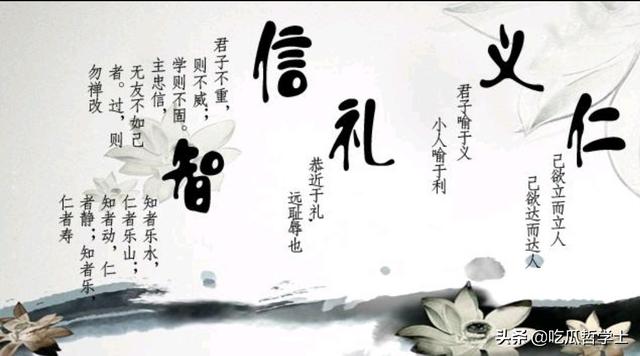 仁
己欲立而立人
己欲达而达人
义
君子喻于义
小人喻于利
礼
恭近于礼,
远耻辱也
信
君子不重,
则不威;
学则不固。
主忠信,
无友不如己
者。过,则
勿禅改
智
知者乐水,
仁者乐山;
知者动,仁
者静;知者乐,
仁者寿
头条 @吃瓜哲学士